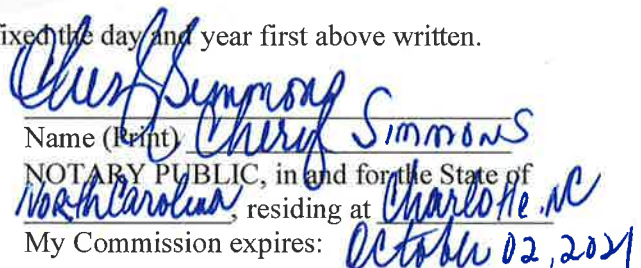 ixed the day and year first above written.
Cheryl Simmons
Name (Print) Cheryl Simmons
NOTARY PUBLIC, in and for the State of
North Carolina, residing at Charlotte, NC
My Commission expires: October 02, 2021